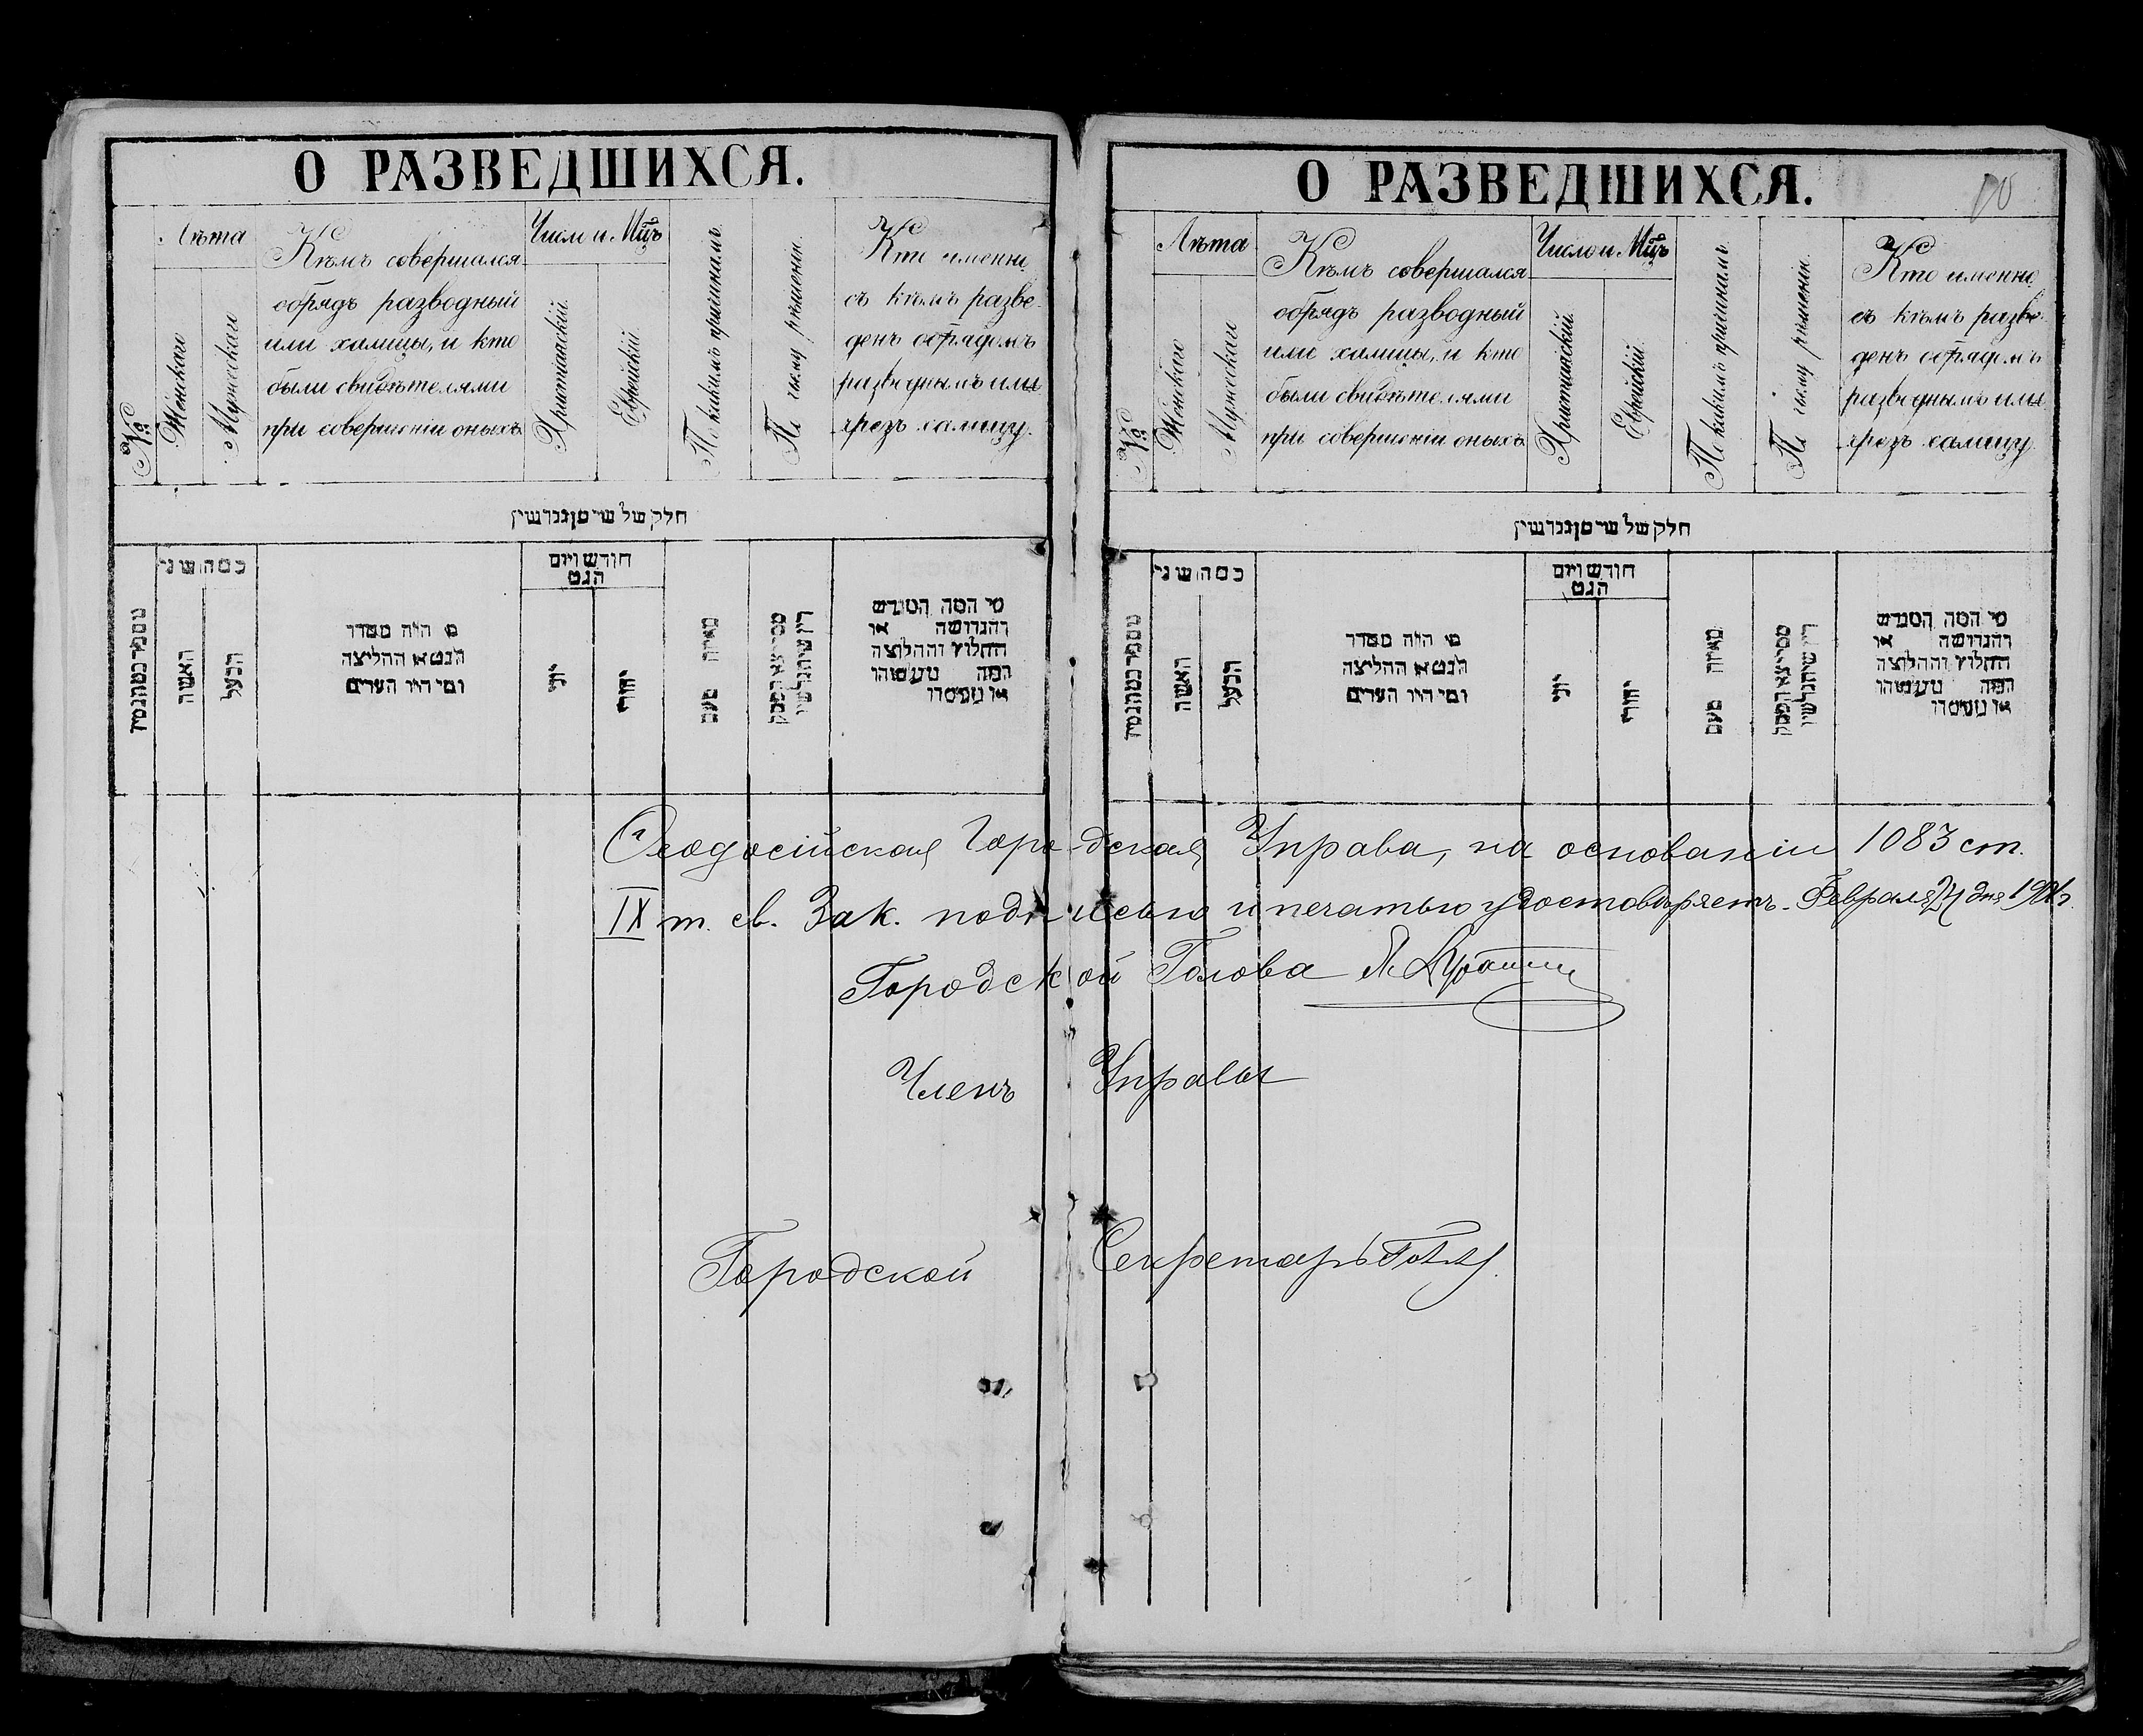 О РАЗВЕДШИХСЯ.
№
Лѣта
Женскаго
Мужескаго
Кѣмъ совершался
обрядъ разводный
или халицы, и кто
были свидѣтелями
при совершеніи оныхъ
Число и Мцъ
Христіанскій.
Еврейскій
По какимъ причинамъ.
По чьему рѣшенію.
Кто именно
съ кѣмъ разве-
денъ обрядомъ
разводнымъ или
чрезъ халицу.
חלק של
כמה שני
האשה
הבעל
מי היה מסדר
הגט או החליצה
ומי היו העדים
חודש ויום
הגט
יוני
יהודי
מאיזה טעם
מי המה המגרש
והגרושה או
החלוץ והחלוצה
המה
О РАЗВЕДШИХСЯ.
№
Лѣта
Женскаго
Мужескаго
Кѣмъ совершался
обрядъ разводный
или халицы, и кто
были свидѣтелями
при совершеніи оныхъ
Число и Мцъ
Христіанскій.
Еврейскій.
По какимъ причинамъ
По чьему рѣшенію.
Кто именно
съ кѣмъ разве-
денъ обрядомъ
разводнымъ или
чрезъ халицу.
חלק של
כמה שני
האשה
הבעל
מי היה מסדר
הגט או החליצה
ומי היו העדים
חודש ויום
הגט
יוני
יהודי
מאיזה טעם
מי המה המגרש
והגרושה או
החלוץ והחלוצה
המה
Ѳеодосійская Городская Управа, на основаніи 1083 ст.
IX т. св. Зак. подписью и печатью удостовѣряетъ. Февраля дня
Городской Голова
Членъ Управы
Городской Секретарь